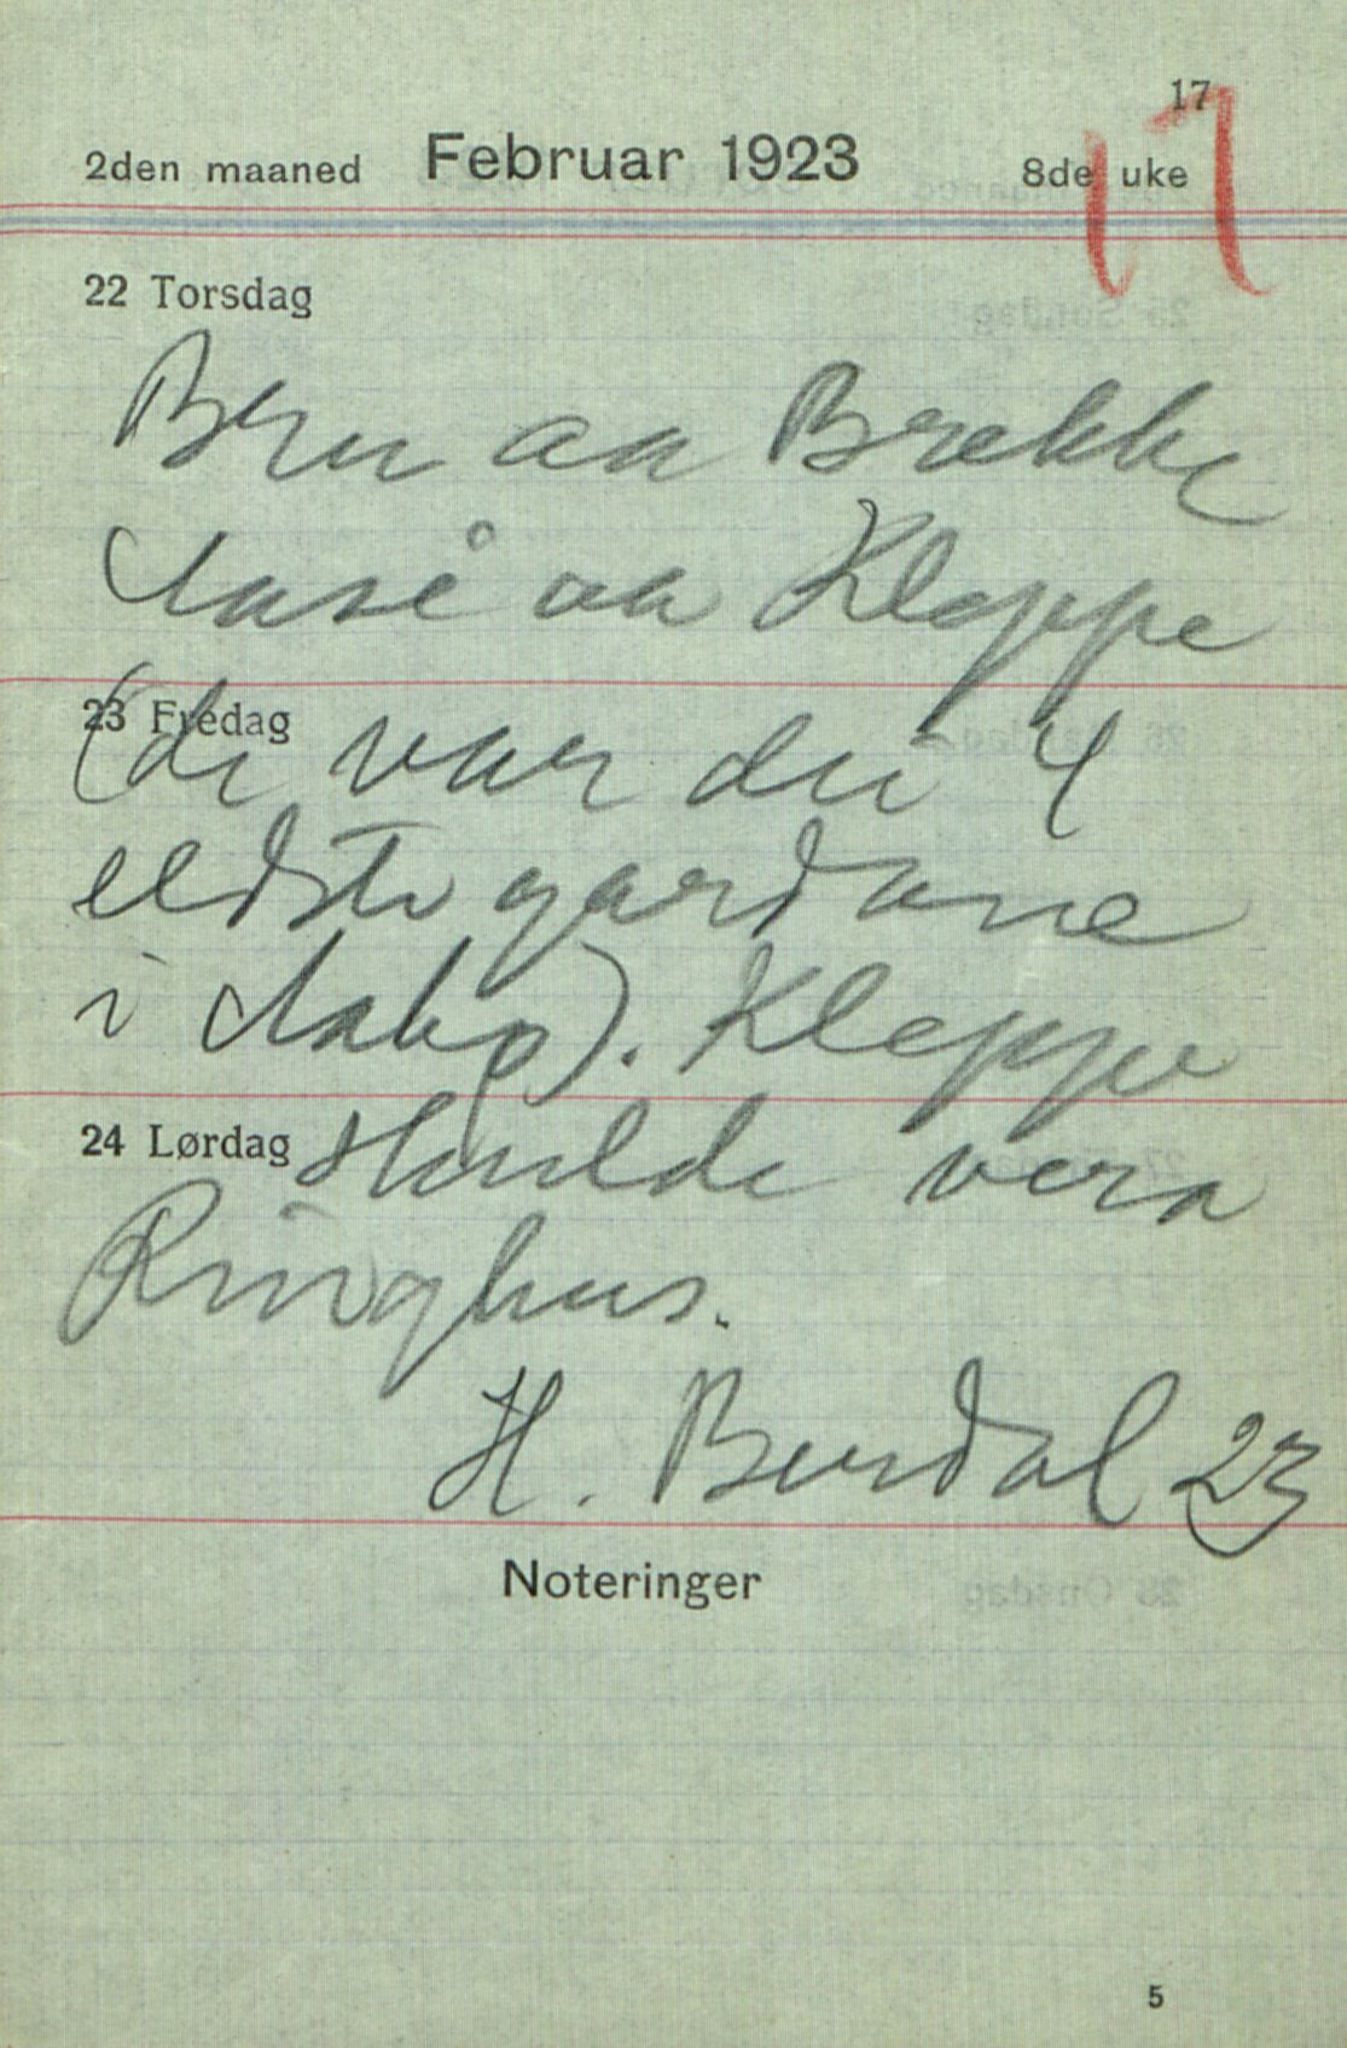 17
17
2den maaned Februar 1923 8de uke
22 Torsdag
Bru aa Brekke
Aase aa Kleppe
23 Fredag
(de var dei 4
eldste gardane
i Aakp). Kleppe
24 Lørdag
skulde vera
Ringhus.
H. Burdal 23
Noteringer
5